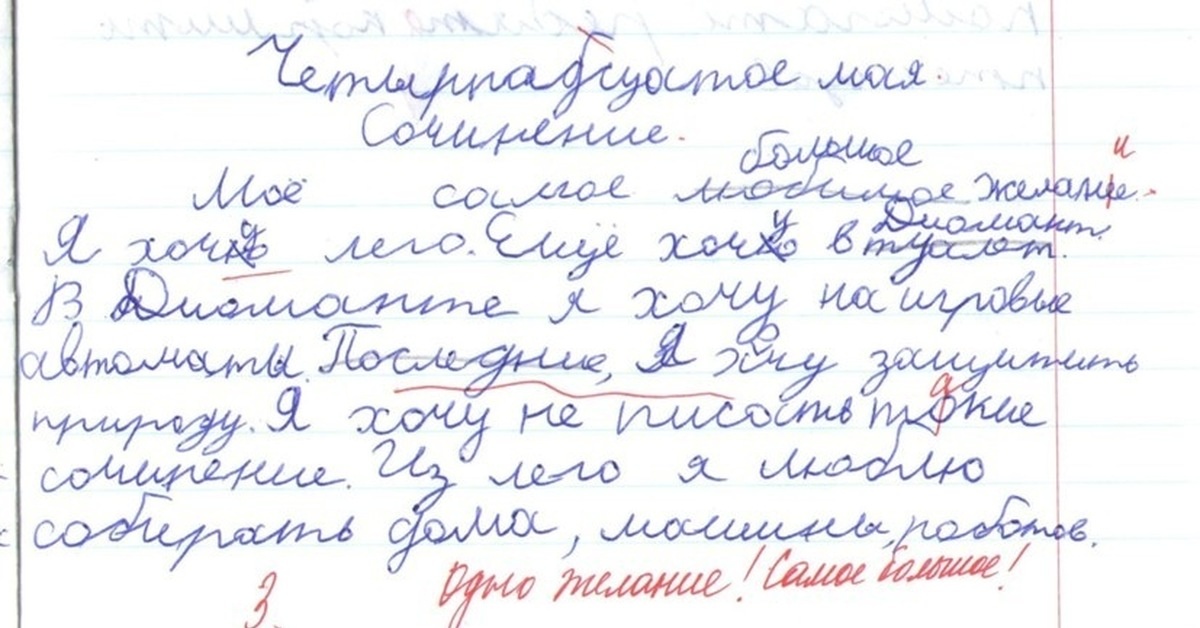 Четырнадцатое мая.
Сочинение.
большое
Моё самое любимое желание.
и
Я хочу лего. Ещё хочу в туалет.
Диамант.
В Диаманте я хочу на игровые
автоматы. Последние, Я хочу защитить
природу. Я хочу не писать такие
сочинение. Из лего я люблю
собирать дома, машины, работов.
Одно желание! Самое большое!
3